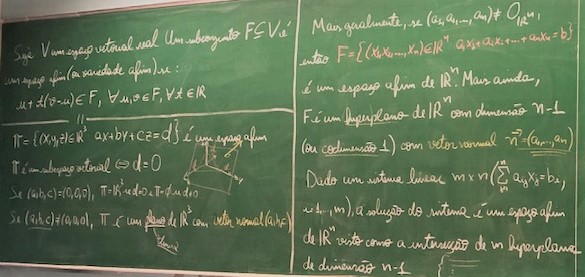 Seja V um espaço vetorial real Um subconjunto F ⊆ V é
um espaço afim (ou variedade afim) se:
u + t(v-u) ∈ F, ∀ u, v ∈ F, ∀ t ∈ ℝ
Π = {(x,y,z) ∈ ℝ³ ax+by+cz=d} é um espaço afim
Π é um subespaço vetorial ⇔ d=0
Se (a,b,c)=(0,0,0), Π=ℝ³ se d=0 e Π=∅ se d≠0
Se (a,b,c)≠(0,0,0), Π é um plano de ℝ³ com vetor normal (a,b,c)
Mais geralmente, se (a₁,a₂,...,aₙ) ≠ 0ℝⁿ,
então F={(x₁,x₂,...,xₙ) ∈ ℝⁿ a₁x₁+a₂x₂+...+aₙxₙ=b}
é um espaço afim de ℝⁿ. Mais ainda,
F é um hiperplano de ℝⁿ com dimensão n-1
(ou codimensão 1) com vetor normal n⃗=(a₁,...,aₙ)
Dado um sistema linear m×n (∑ aᵢⱼxⱼ = bᵢ,
i=1,...,m), a solução do sistema é um espaço afim
de ℝⁿ visto como a intersecção de m hiperplanos
de dimensão n-1